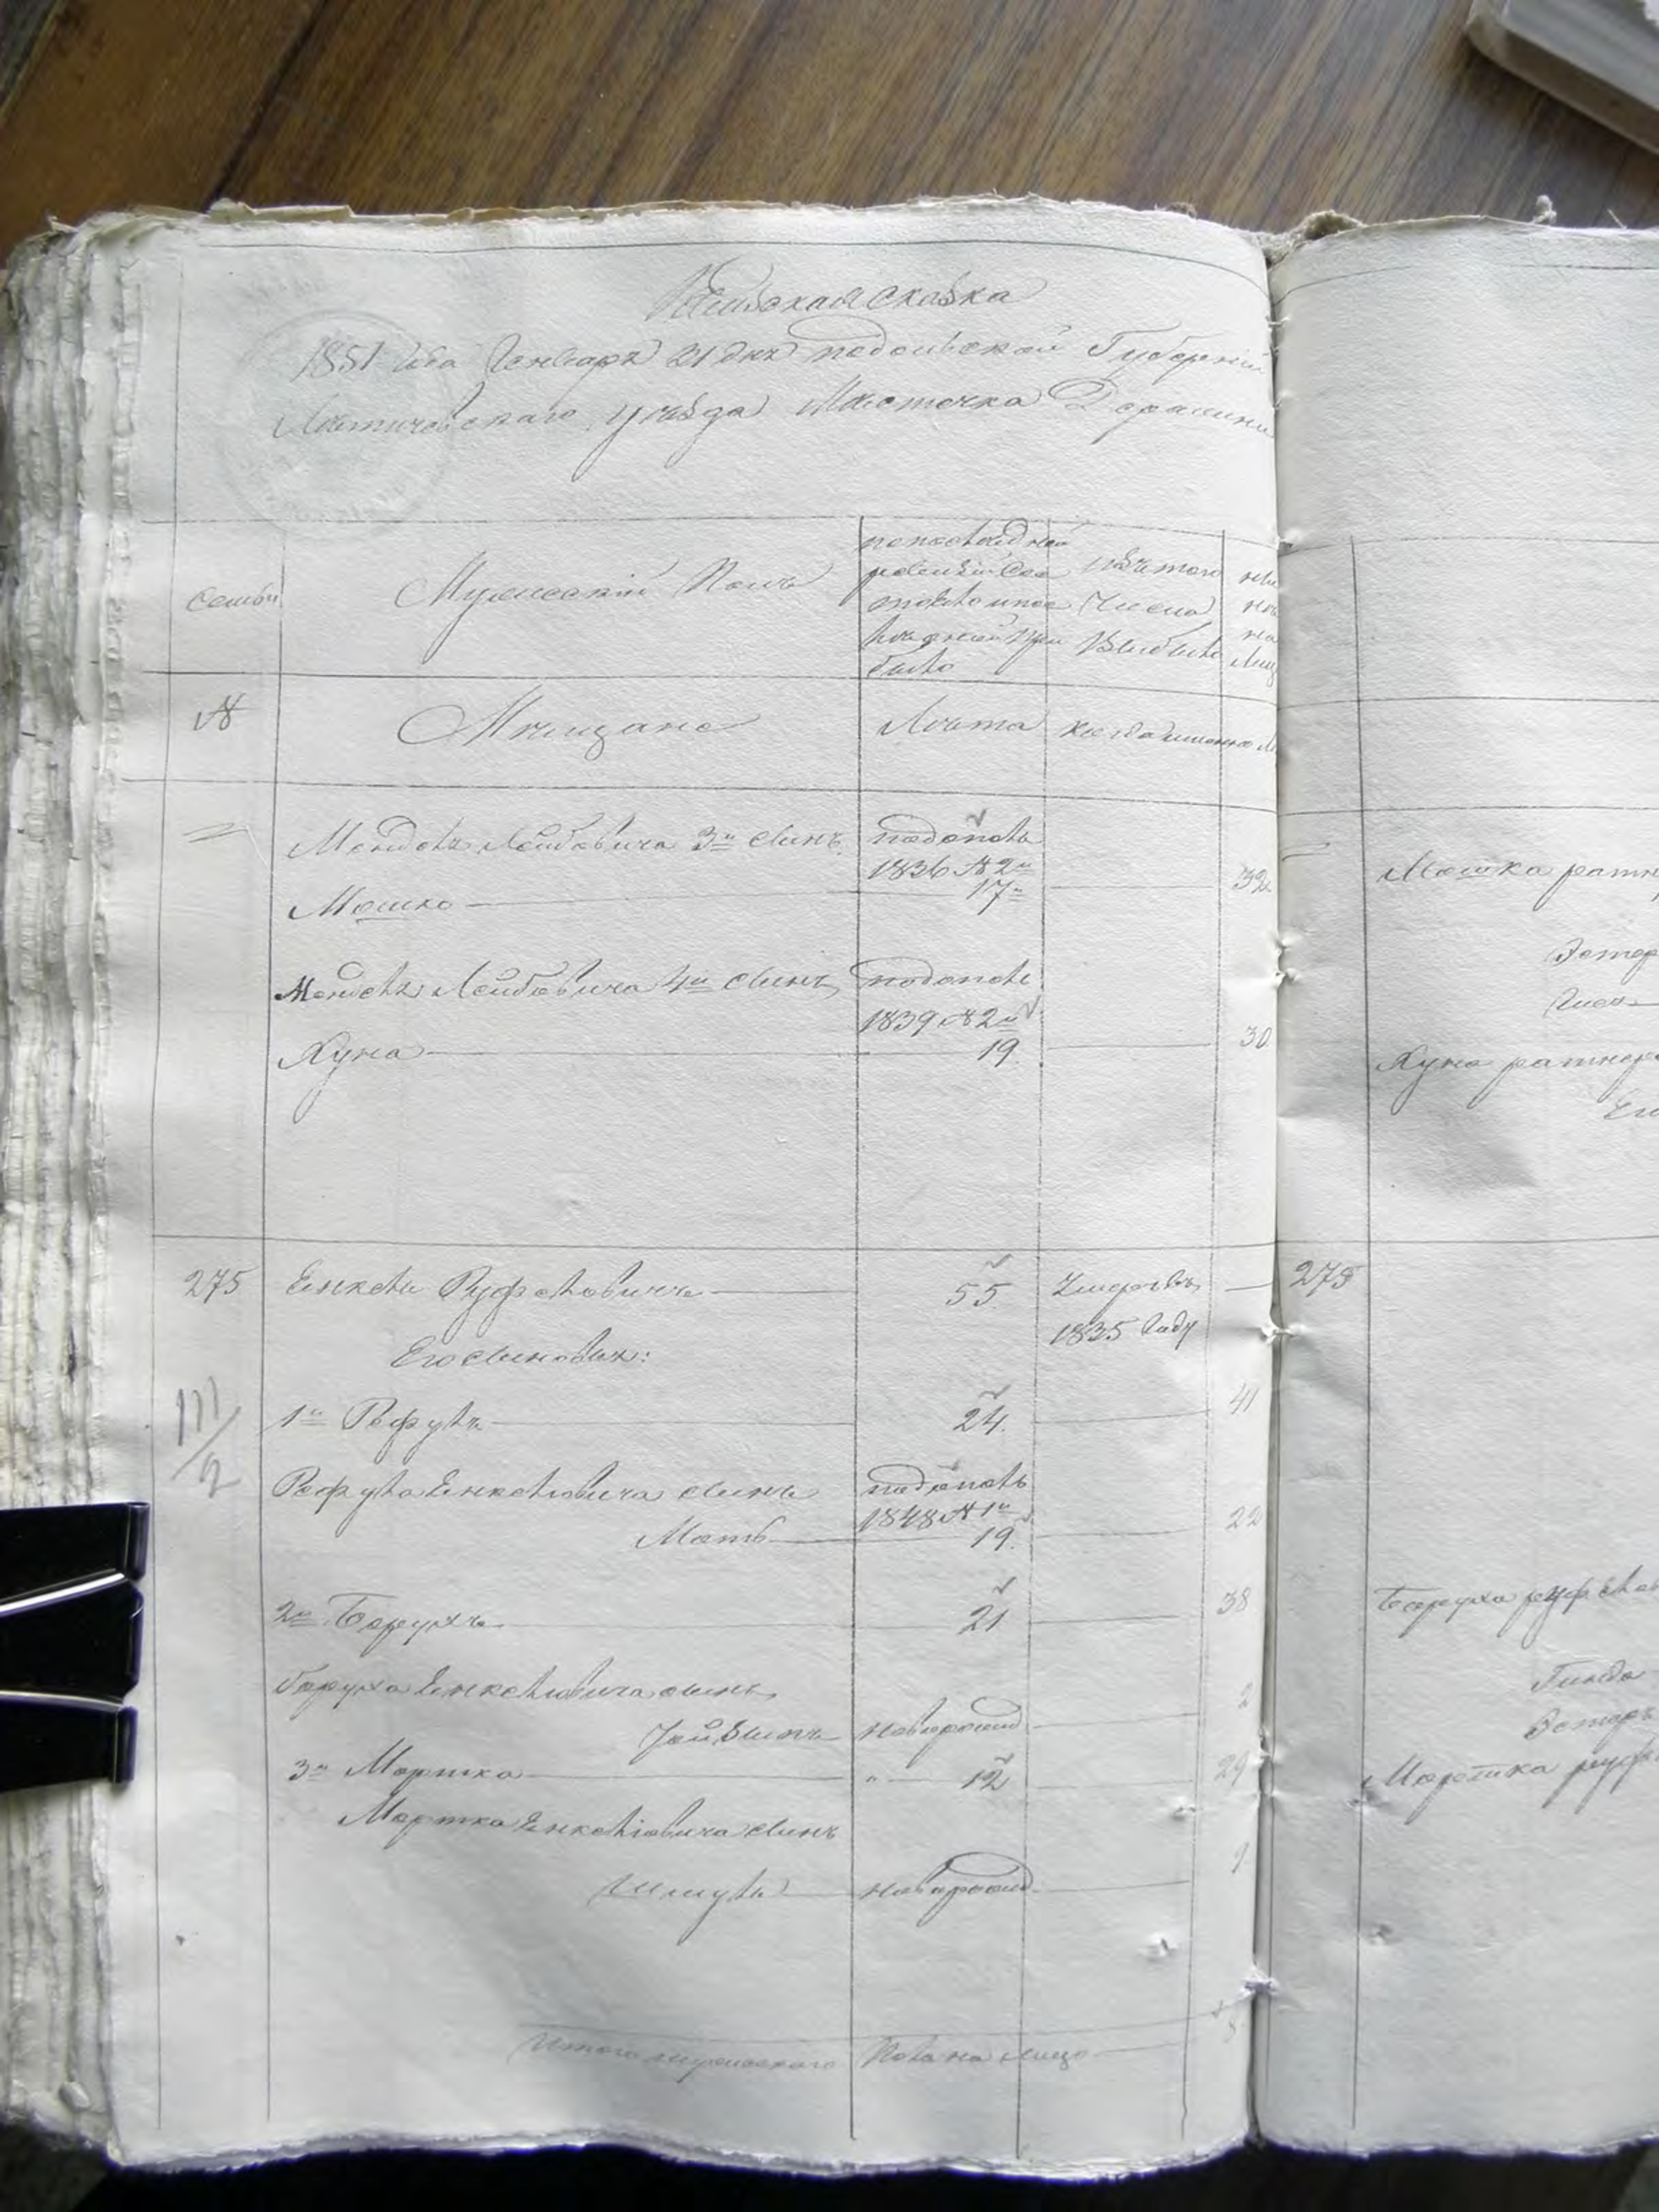 Ревизская сказка
1851 Года Генваря 21 дня подольской Губерніи
Летичевскаго уѣзда Местечка Деражни
Семьи
Мужескій Полъ
по последней
ревизіи Со
стояло и пос
лѣ оной при
было
изъ того
Числа
Выбыло
№
Мещане
Лета
когда именно
Мендель Лейбовича 3й сынъ
подополн
1836 № 2й
Мошко
17
32
Мендель Лейбовича 4й сынъ
подополн
1839 № 2й
Хуна
19
30
275
Енкель Руфелевичъ
55
Умеръ въ
1835 Году
Его сыновья:
111/2
1й Рефулъ
24
41
Рефула Енкелевича сынъ
подополн
1848 № 1й
Мать
19
22
2й Борухъ
21
38
Боруха Енкелевича сынъ
2
новорожд
3й Мортка
" 12
29
Мортка Енкелевича сынъ
1
новорожд
Итого мужескаго Пола на лицо
275
Мошка ратн
Эстер
Хуна ратнер
Его
Боруха руфелов
Гинда
Эстеръ
Мортка руф